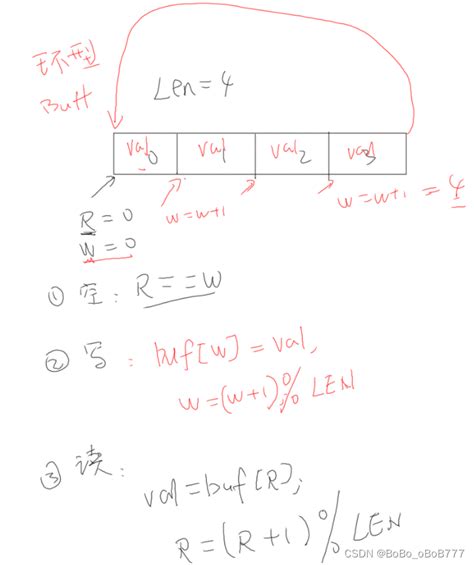 环型
Buff
Len=4
val0 val1 val2 val3
R=0
W=0
w=w+1
w=w+1=4
①空：R==W
②写：buf[w]=val,
w=(w+1)%LEN
③读：
val=buf[R];
R=(R+1)%LEN
CSDN @BoBo_oBoB777